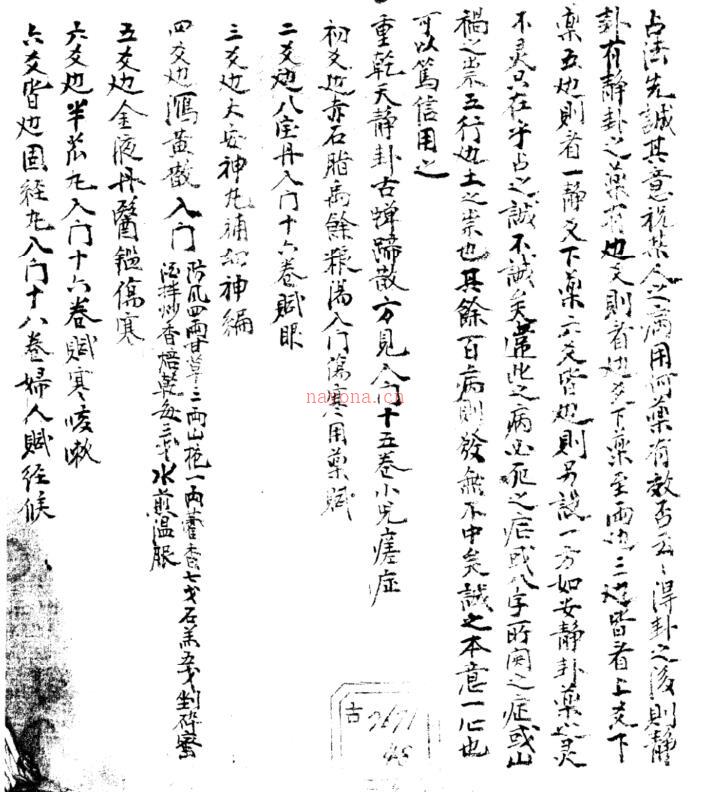 占法先誠其意祝某人之病用何藥有效否云〻得卦之後則静
卦有静卦之藥有动爻則者动爻下藥至两动三动皆者上爻下
藥五动則者一静爻下藥六爻皆动則另設一方如安静卦藥灵
不灵只在乎占之誠不誠矣當此之病必死之症或八字所関之症或山
禍之祟五行动土之祟也其餘百病則發無不中矣誠之本意一心也
可以篤信用之
重乾天静卦古蝉蹄散方見入门十五卷小兒瘧症
初爻动赤石脂禹餘粮湯入门傷寒用藥賦
二爻动八宝丹入门十六卷賦眼
三爻动大安神丸補神編
四爻动瀉黄散入门
防风四兩甘草二兩山梔一兩藿香七戈石羔五戈剉碎蜜
酒拌炒香焙乾每三戈水煎温服
五爻动金液丹醫鑑傷寒
六爻动半苽丸入门十六卷賦寒咳嗽
六爻皆动固経丸入门十八卷婦人賦経候
nayona.cn
古
2671
48